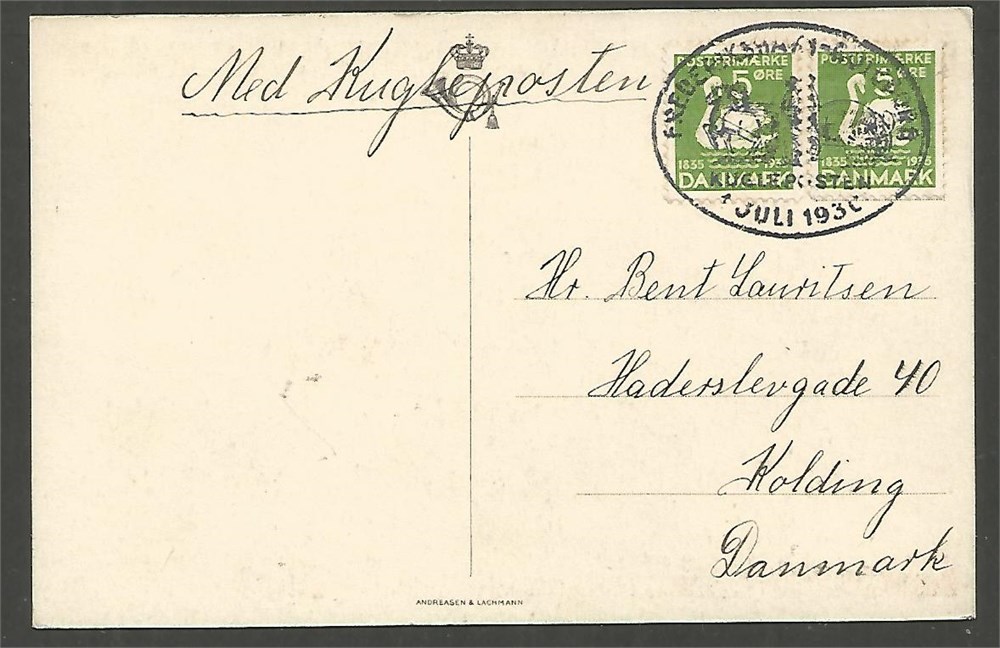 Med Kugleposten
POSTFRIMÆRKE POSTFRIMÆRKE
5 ØRE 5 ØRE
1835 1935 1835 1935
DANMARK DANMARK
KUGLEPOSTEN
1 JULI 193
Hr. Bent Lauritsen
Haderslevgade 40
Kolding
Danmark
ANDREASEN & LACHMANN